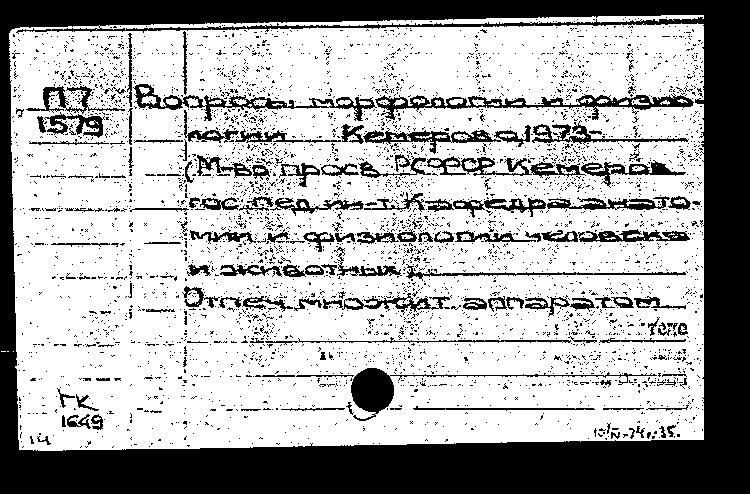 П7
1579
Вопросы морфологии и физио-
логии Кемерово, 1973-
(М-во просв РСФСР Кемеров
гос. пед. ин-т Кафедра анато-
мии и физиологии человека
и животных)
Отпеч множит аппаратом
ГК
1649
14